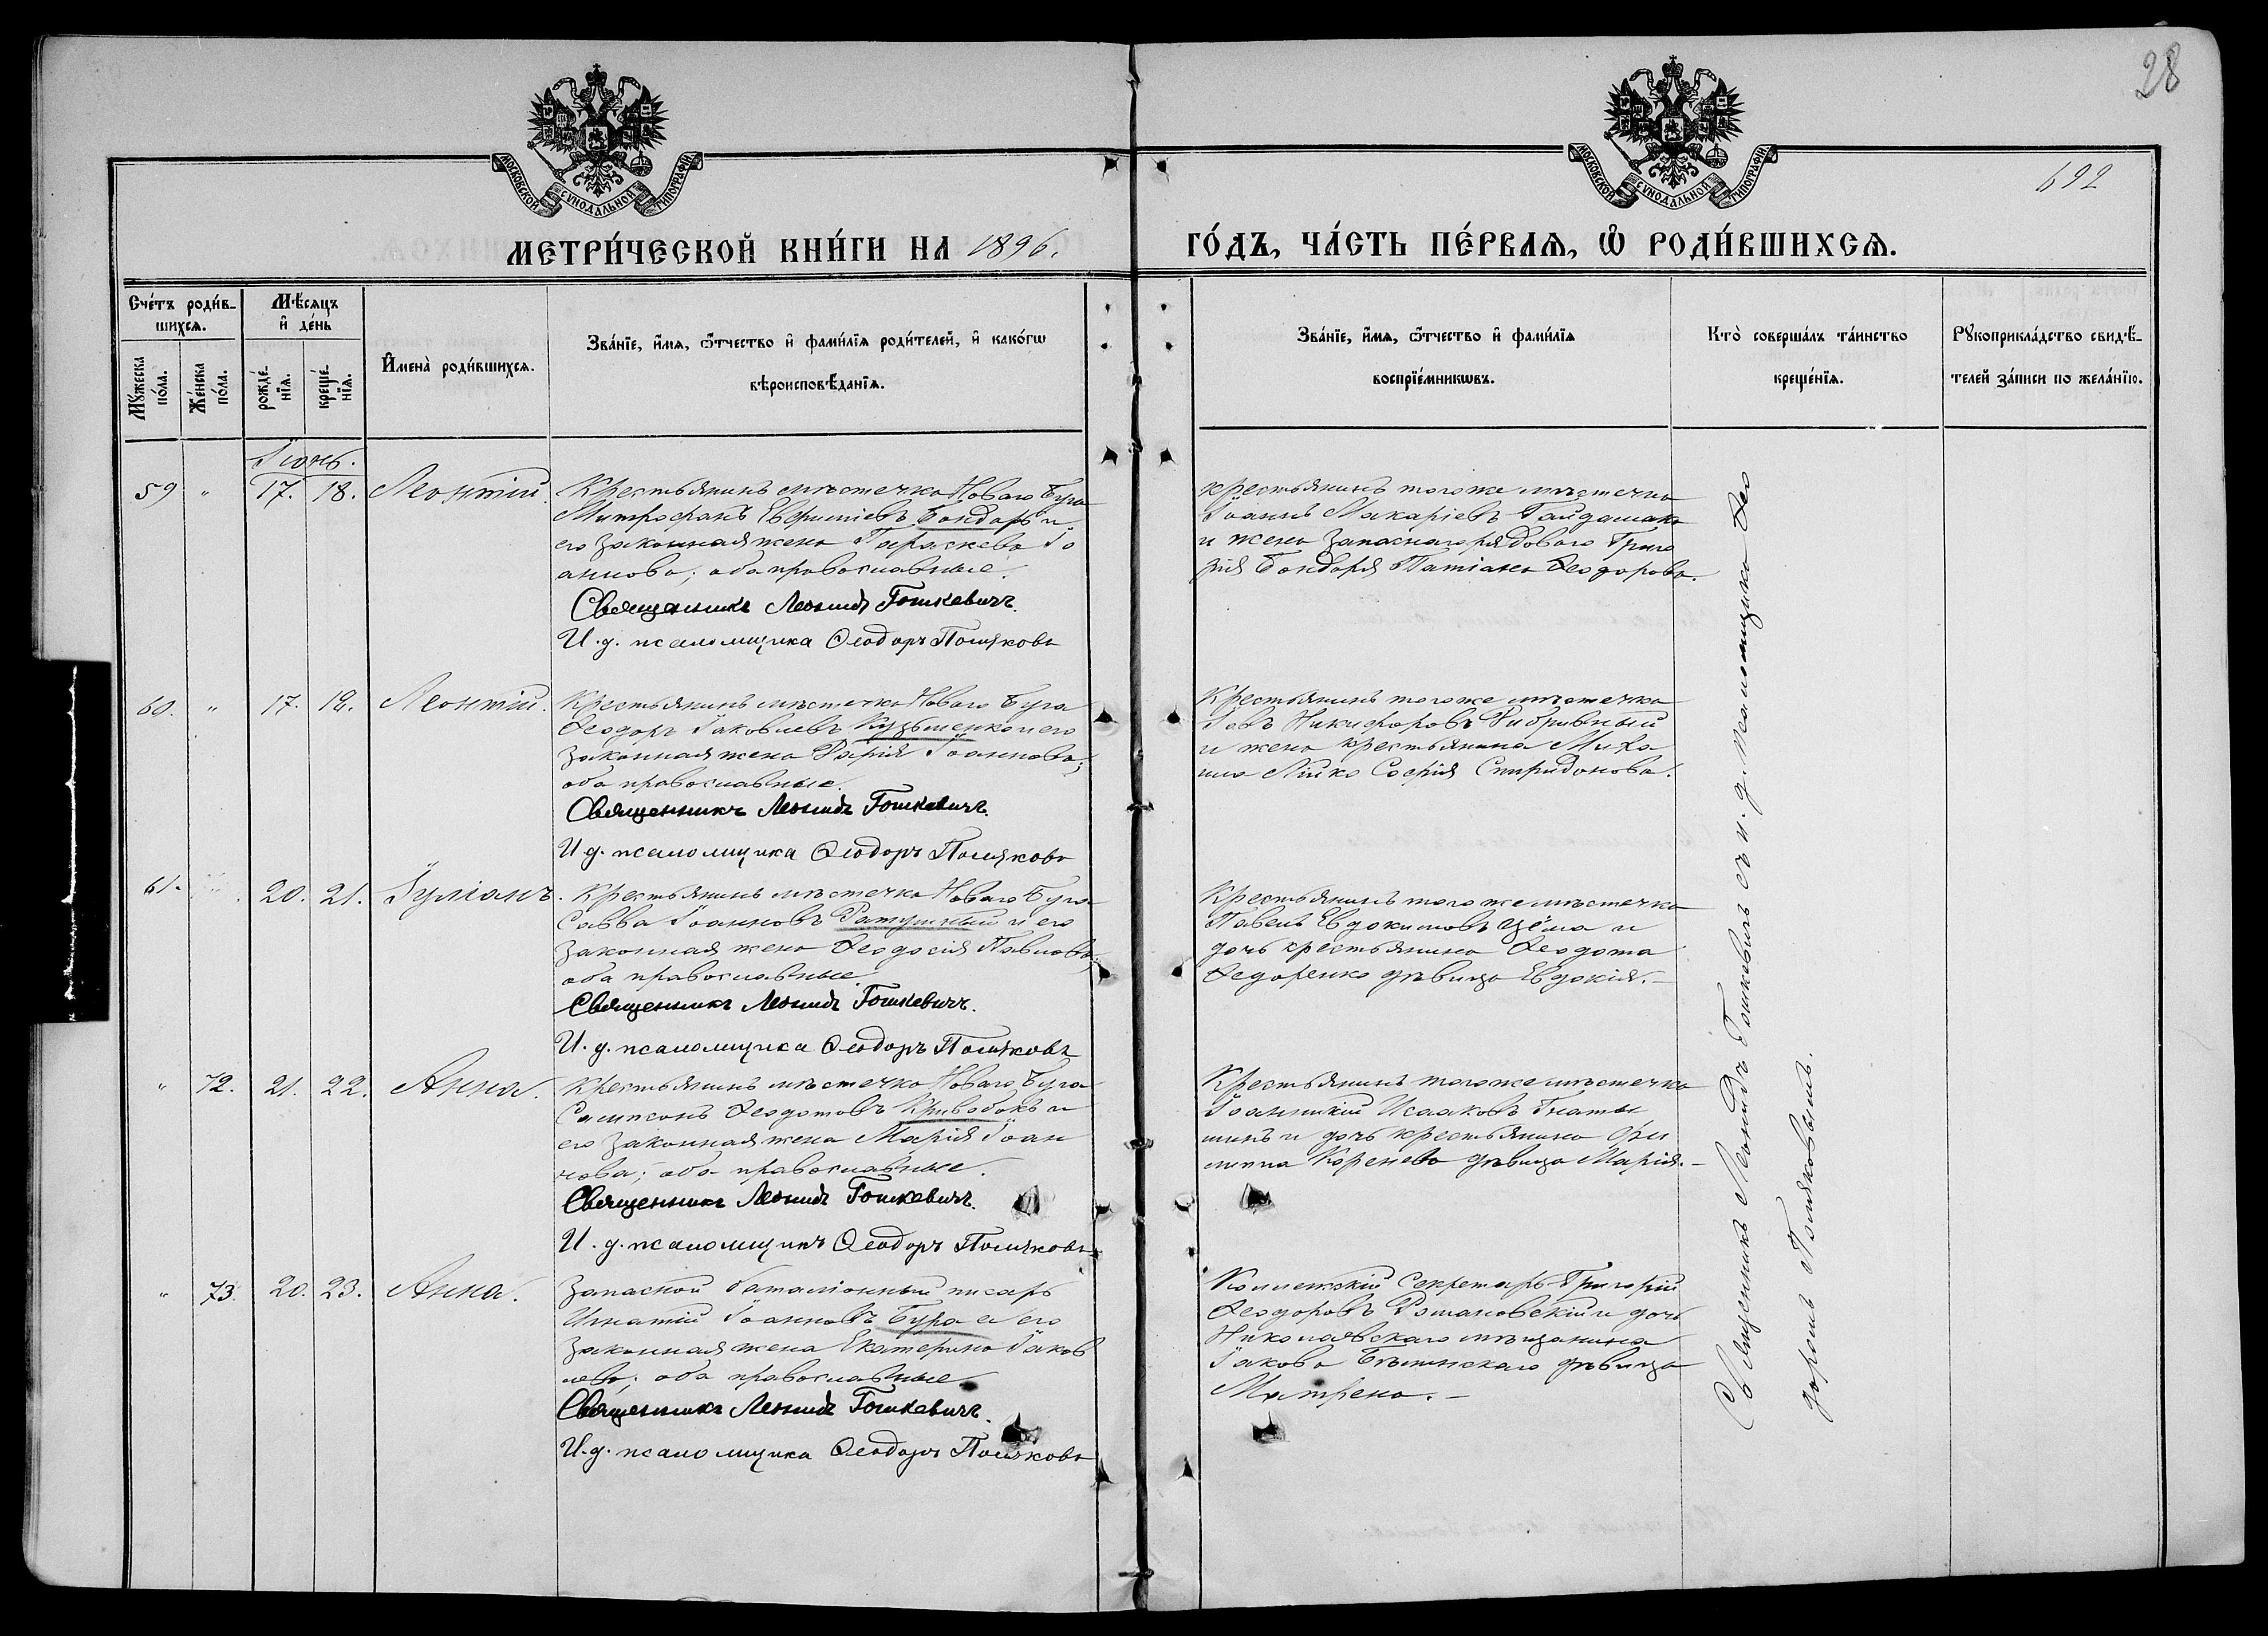 28
692
МОСКОВСКОЙ СѴНОДАЛЬНОЙ ТИПОГРАФІИ
МОСКОВСКОЙ СѴНОДАЛЬНОЙ ТИПОГРАФІИ
МЕТРИ́ЧЕСКОЙ КНИ́ГИ НА 1896.
ГО́ДЪ, ЧА́СТЬ ПЕ́РВАѦ, Ѡ РОДИ́ВШИХСѦ.
Сче́тъ роди́в-
шихсѧ.
Мꙋ́жеска
по́ла.
Же́нска
по́ла.
Мѣ́сѧцъ
и҆ де́нь
рожде́-
нїѧ.
креще́-
нїѧ.
И҆мена̀ роди́вшихсѧ.
Зва́нїе, и҆́мѧ, ѻ҆́тчество и҆ фами́лїѧ роди́телей, и҆ како́гѡ
вѣроисповѣ́данїѧ.
Зва́нїе, и҆́мѧ, ѻ҆́тчество и҆ фами́лїѧ
воспрїе́мникѡвъ.
Кто̀ соверша́лъ та́инство
креще́нїѧ.
Рꙋкоприкла́дство свидѣ́-
телей за́писи по жела́нїю.
Іюнь.
59 " 17. 18. Леонтій.
Крестьянинъ мѣстечка Новаго Буга
Митрофанъ Евфиміевъ Бондарь и
его законная жена Параскева Іо
аннова; оба православные.
Священникъ Леонидъ Гошкевичъ.
И.д. псаломщика Ѳеодоръ Поляковъ
крестьянинъ того же мѣстечка
Іоаннъ Макаріевъ Гайдамака
и жена запаснаго рядоваго Григо
рія Бондаря Татіана Ѳеодорова.
60. " 17. 19. Леонтій.
Крестьянинъ мѣстечка Новаго Буга
Ѳеодоръ Іаковлевъ Кузьменко и его
законная жена Марія Іоаннова;
оба православные.
Священникъ Леонидъ Гошкевичъ.
И.д. псаломщика Ѳеодоръ Поляковъ
Крестьянинъ того же мѣстечка
Никифоровъ
и жена крестьянина Миха
ила Софія Спиридонова.
61. " 20. 21. Іуліанъ.
Крестьянинъ мѣстечка Новаго Буга
Савва Іоанновъ Ратушный и его
законная жена Ѳеодосія Павлова
оба православные.
Священникъ Леонидъ Гошкевичъ.
И.д. псаломщика Ѳеодоръ Поляковъ
Крестьянинъ того же мѣстечка
Павелъ Евдокимовъ и
дочь крестьянина Ѳеодота
Ѳедоренко дѣвица Евдокія.–
" 72. 21. 22. Анна.
Крестьянинъ мѣстечка Новаго Буга
Сампсонъ Ѳеодотовъ Кривобокъ и
его законная жена Марія Іоан
нова; оба православные.
Священникъ Леонидъ Гошкевичъ.
И.д. псаломщикъ Ѳеодоръ Поляковъ
Крестьянинъ того же мѣстечка
Іоанникій Исааковъ Гнаты
шинъ и дочь крестьянина Фи
липпа Коренева дѣвица Марія.–
" 73. 20. 23. Анна.
Запасной баталіонный писарь
Игнатій Іоанновъ Бура и его
законная жена Екатерина Іаков
лева; оба православные
Священникъ Леонидъ Гошкевичъ.
И.д. псаломщика Ѳеодоръ Поляковъ
Коллежскій Секретарь Григорій
Ѳеодоровъ Романовскій и дочь
Николаевскаго мѣщанина
Іакова дѣвица
Матрена.–
Священникъ Леонидъ Гошкевичъ съ и.д. псаломщика Ѳео
доромъ Поляковымъ.